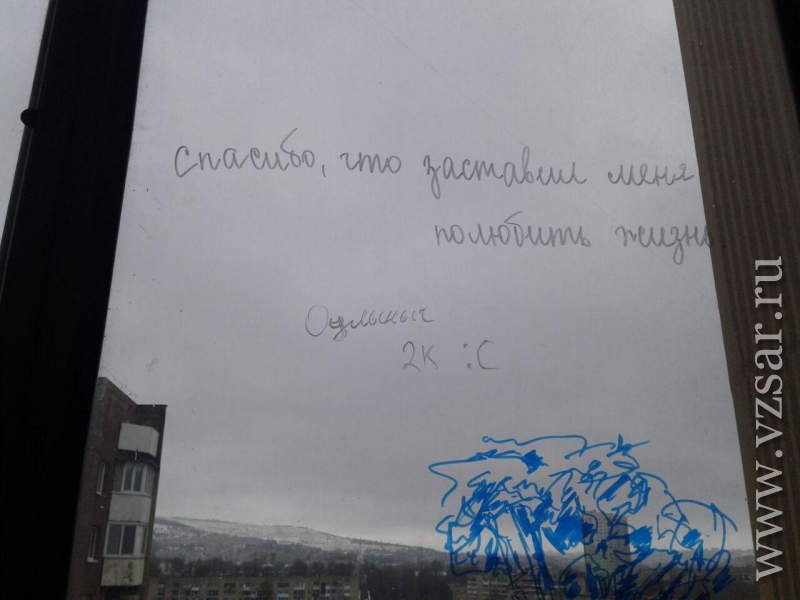 Спасибо, что заставил меня
полюбить жизнь
2к :С
www.vzsar.ru